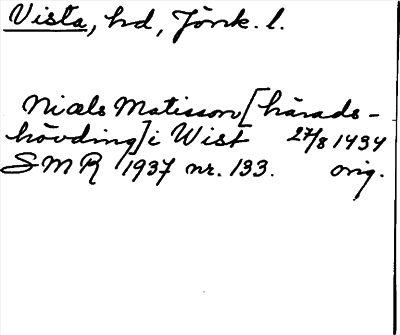 Vista, hd, Jönk. l.
Niæls Matisson [härads-
hövding] i Wist 27/8 1434
SMR 1937 nr. 133. orig.